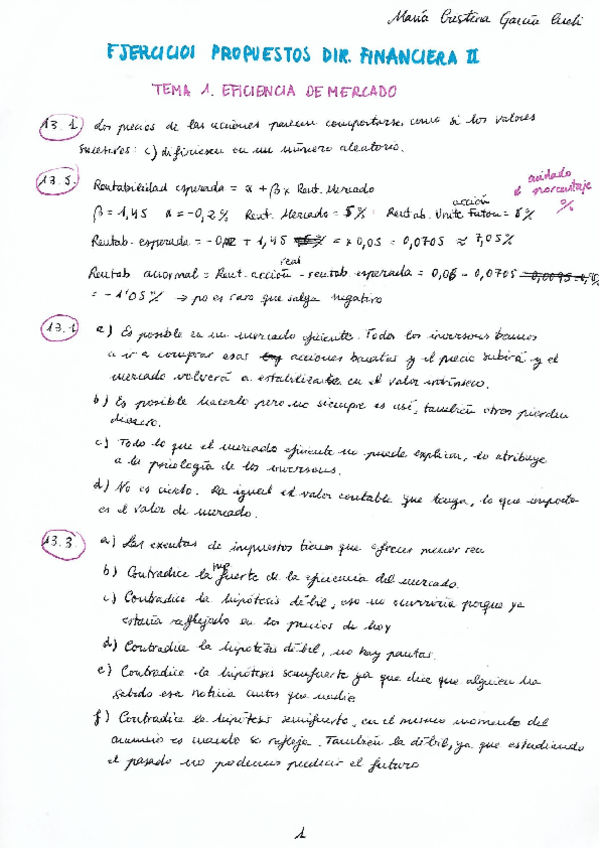 María Cristina García
EJERCICIOS PROPUESTOS DIR. FINANCIERA II
TEMA 1. EFICIENCIA DE MERCADO
13.1. Los precios de las acciones parecen comportarse como si los valores
sucesivos: c) difiriesen en un número aleatorio.
cuidado
el porcentaje
%
13.5. Rentabilidad esperada = α + β x Rent. Mercado
acción
β = 1,45 α = -0,2% Rent. Mercado = 5% Rentab. Futon = 6%
Rentab. esperada = -0,2 + 1,45 x 0,05 = 0,0705 ≈ 7,05%
real
Rentab anormal = Rent. acción - rentab esperada = 0,06 - 0,0705
= -1'05% → no es raro que salga negativo
13.1 a) Es posible en un mercado eficiente. Todos los inversores
a ir a comprar esas acciones baratas y el precio subirá y el
mercado volverá a estabilizarse en el valor intrínseco.
b) Es posible hacerlo pero no siempre es así, también otros pierden
dinero.
c) Todo lo que el mercado eficiente no puede explicar, lo atribuye
a la psicología de los inversores.
d) No es cierto. Da igual el valor contable que tenga, lo que importa
es el valor de mercado.
13.3 a) Las exentas de impuestos tienen que ofrecer menor
b) Contradice la fuerte de la eficiencia del mercado.
c) Contradice la hipótesis débil, eso no ocurriría porque ya
estaría reflejado en los precios de hoy
d) Contradice la hipótesis débil, no hay pautas.
e) Contradice la hipótesis semifuerte ya que dice que alguien ha
sabido esa noticia antes que nadie
f) Contradice la hipótesis semifuerte, en el mismo momento del
anuncio es cuando se refleja. También la débil, ya que estudiando
el pasado no podemos predecir el futuro
1